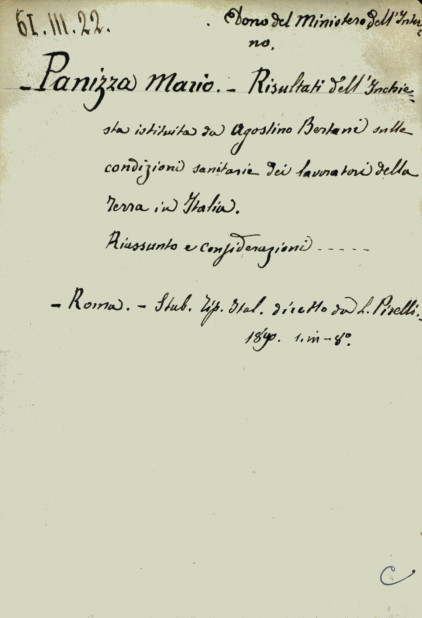 61.III.22.
Dono del Ministero dell'Inter-
no.
- Panizza Mario. - Risultati dell'Inchie-
sta istituita da Agostino Bertani sulle
condizioni sanitarie dei lavoratori della
Terra in Italia.
Riassunto e considerazioni .....
- Roma. - Stab. Tip. Ital. diretto da L. Perelli.
1890. 1. in-8°.
C